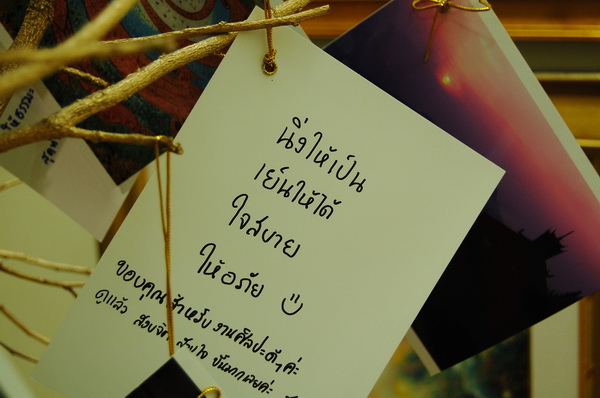 นิ่งให้เป็น
เย็นให้ได้
ใจสบาย
ให้อภัย
ขอบคุณ สำหรับ งานศิลปะดีๆ ค่ะ
ดูแล้ว สงบจิต สบายใจ ขึ้นมากเลยค่ะ